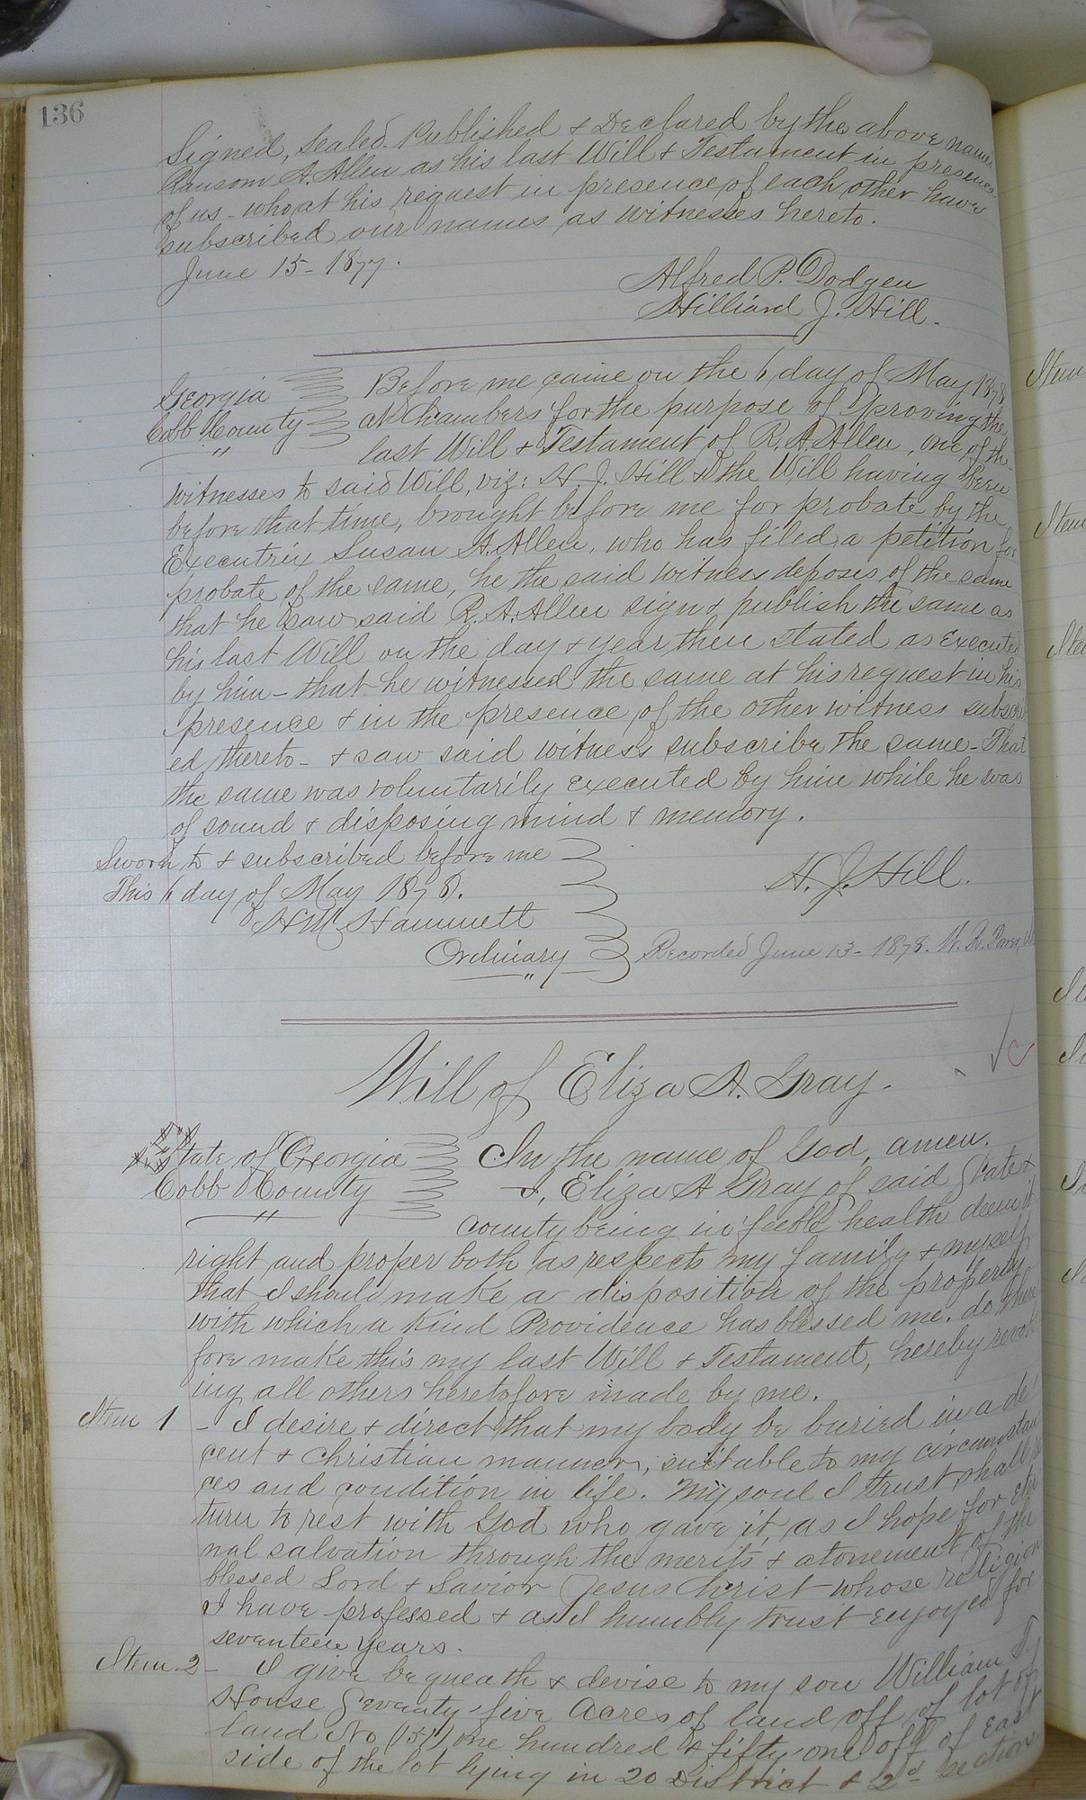 136
Signed, Sealed, Published & Declared by the above name
Ransom A. Allen as his last Will & Testament in presence
of us - who at his request in presence of each other have
subscribed our names as witnesses hereto.
June 15 - 1877.
Alfred P. Dodgen
Hilliard J. Hill.
Georgia
Cobb County
Before me came on the 6 day of May 1878
at Chambers for the purpose of proving the
last Will & Testament of R. A. Allen, one of the
witnesses to said Will, viz: H. J. Hill & the Will having been
before that time, brought before me for probate by the
Executrix Susan A. Allen, who has filed a petition for
probate of the same, he the said witness deposes of the same
that he saw said R. A. Allen sign & publish the same as
his last Will on the day & year then stated as execute
by him - that he witnessed the same at his request in his
presence & in the presence of the other witness subscrib
ed thereto - & saw said witness subscribe the same - That
the same was voluntarily executed by him while he was
of sound & disposing mind & memory.
Sworn to & subscribed before me
This 6 day of May 1878.
H. M. Hammett
Ordinary
H. J. Hill.
Recorded June 13 - 1878.
Will of Eliza A. Gray.
State of Georgia
Cobb County
In the name of God, amen.
I, Eliza A Gray of said State &
county being in feeble health deem it
right and proper both as respects my family & myself
that I should make a disposition of the property
with which a kind Providence has blessed me. do there
fore make this my last Will & Testament, hereby revok
ing all others heretofore made by me.
Item 1 - I desire & direct that my body be buried in a de
cent & Christian manner, suitable to my circumstan
ces and condition in life. My soul I trust shall re
turn to rest with God who gave it, as I hope for eter
nal salvation through the merits & atonement of the
blessed Lord & Savior Jesus Christ whose religion
I have professed & as I humbly trust enjoyed for
seventeen years.
Item 2 - I give bequeath & devise to my son William
House Seventy five acres of land off of lot of
land No (151) one hundred & fifty one off of East
side of the lot lying in 20 District & 2d section
Item